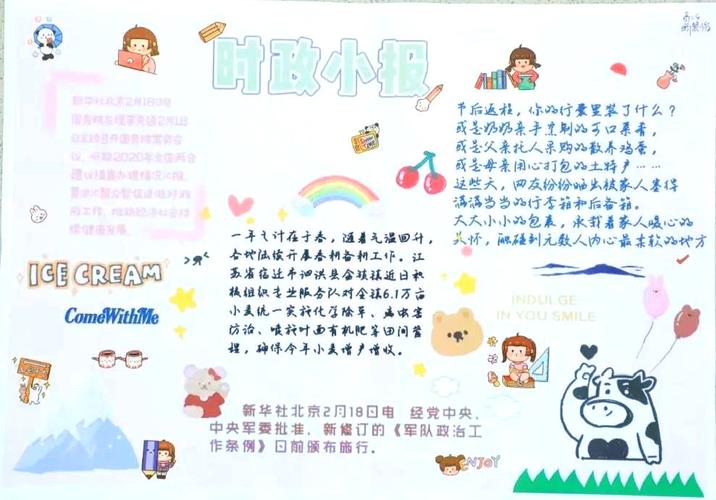 时政小报
新华社北京2月18日电
国务院总理李克强2月1
日主持召开国务院常务会
议，听取2020年全国两会
建议提案办理情况汇报，
要求汇聚众智促进做好政
府工作，推动经济社会持续
健康发展。
ICE CREAM
ComeWithMe
一年之计在于春，随着气温回升，
各地陆续开展春耕备耕工作。江
苏省宿迁市泗洪县金镇镇近日积
极组织专业服务队对全镇6.1万亩
小麦统一实施化学除草、病虫害
防治、喷施叶面有机肥等田间管
理，确保今年小麦增产增收。
节后返程，你的行囊里装了什么？
或是奶奶亲手烹制的可口菜肴，
或是父亲托人采购的散养鸡蛋，
或是母亲用心打包的土特产……
这些天，网友纷纷晒出被家人塞得
满满当当的行李箱和后备箱。
大大小小的包裹，承载着家人暖心的
关怀，触碰到无数人内心最柔软的地方
INDULGE
IN YOU SMILE
新华社北京2月18日电 经党中央、
中央军委批准，新修订的《军队政治工
作条例》日前颁布施行。
ENJOY